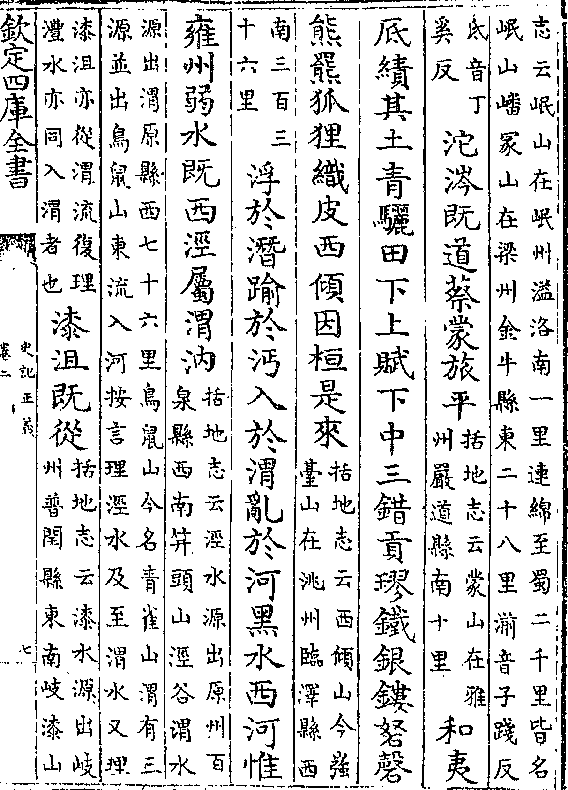 志云岷山在岷州溢洛南一里連綿至蜀二千里皆名
岷山嶓冢山在梁州金牛縣東二十八里湔音子踐反
氐音丁
奚反
沱涔既道蔡蒙旅平
括地志云蒙山在雅
州嚴道縣南十里
和夷
厎績其土青驪田下上賦下中三錯貢璆鐵銀鏤砮磬
熊羆狐狸織皮西傾因桓是來
括地志云西傾山今強
臺山在洮州臨澤縣西
南三百三
十六里
浮於潛踰於沔入於渭亂於河黑水西河惟
雍州弱水既西涇屬渭汭
括地志云涇水源出原州百
泉縣西南笄頭山涇谷渭水
源出渭原縣西七十六里鳥鼠山今名青雀山渭有三
源並出鳥鼠山東流入河按言理涇水及至渭水又理
漆沮亦從渭流復理
灃水亦同入渭者也
漆沮既從
括地志云漆水源出岐
州普閏縣東南岐漆山
欽定四庫全書
史記正義
卷二
七